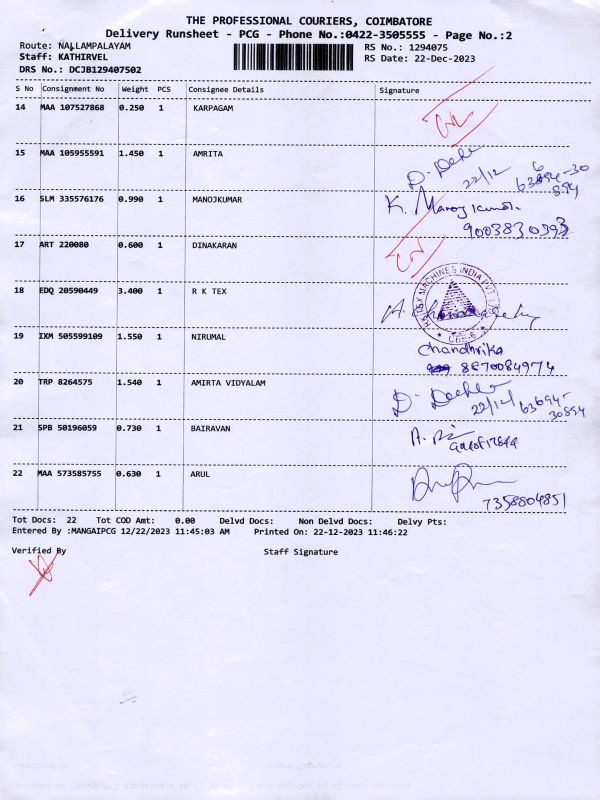 THE PROFESSIONAL COURIERS, COIMBATORE
Delivery Runsheet - PCG - Phone No.:0422-3505555 - Page No.:2
Route: NALLAMPALAYAM RS No.: 1294075
Staff: KATHIRVEL RS Date: 22-Dec-2023
DRS No.: DCJB129407502
S No Consignment No Weight PCS Consignee Details Signature
14 MAA 107527868 0.250 1 KARPAGAM
15 MAA 105955591 1.450 1 AMRITA
22/12
16 SLM 335576176 0.990 1 MANOJKUMAR K. Manoj Kumar.
9003830393
17 ART 220080 0.600 1 DINAKARAN
18 EDQ 20590449 3.400 1 R K TEX
MACHINES INDIA PVT LTD
CBE-6
19 IXM 505599109 1.550 1 NIRUMAL Chandhrika
8870084974
20 TRP 8264575 1.540 1 AMIRTA VIDYALAM
22/12/ 63694-
30894
21 SPB 50196059 0.730 1 BAIRAVAN
22 MAA 573585755 0.630 1 ARUL
7358804851
Tot Docs: 22 Tot COD Amt: 0.00 Delvd Docs: Non Delvd Docs: Delvy Pts:
Entered By :MANGAIPCG 12/22/2023 11:45:03 AM Printed On: 22-12-2023 11:46:22
Verified By Staff Signature